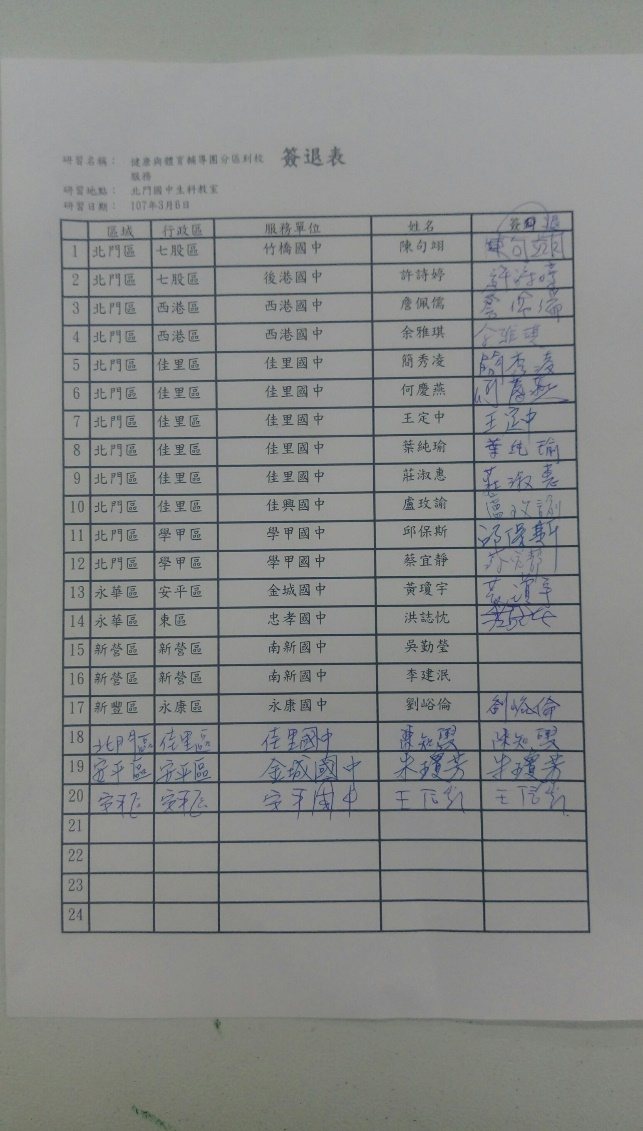 簽退表
研習名稱： 健康與體育輔導團分區到校
服務
研習地點： 北門國中生科教室
研習日期： 107年3月6日
區域 行政區 服務單位 姓名 簽退
1 北門區 七股區 竹橋國中 陳句翊 陳句翊
2 北門區 七股區 後港國中 許詩婷 許詩婷
3 北門區 西港區 西港國中 詹佩儒
4 北門區 西港區 西港國中 余雅琪 余雅琪
5 北門區 佳里區 佳里國中 簡秀凌 簡秀凌
6 北門區 佳里區 佳里國中 何慶燕 何慶燕
7 北門區 佳里區 佳里國中 王定中 王定中
8 北門區 佳里區 佳里國中 葉純瑜 葉純瑜
9 北門區 佳里區 佳里國中 莊淑惠 莊淑惠
10 北門區 佳里區 佳興國中 盧玫諭 盧玫諭
11 北門區 學甲區 學甲國中 邱保斯
12 北門區 學甲區 學甲國中 蔡宜靜 蔡宜靜
13 永華區 安平區 金城國中 黃瓊宇 黃瓊宇
14 永華區 東區 忠孝國中 洪誌忱
15 新營區 新營區 南新國中 吳勤瑩
16 新營區 新營區 南新國中 李建泯
17 新豐區 永康區 永康國中 劉峪倫 劉峪倫
18 北門區 佳里區 佳里國中 陳知興 陳知興
19 安平區 安平區 金城國中 朱瓊芳 朱瓊芳
20 安平區 安平區 安平國中
21
22
23
24